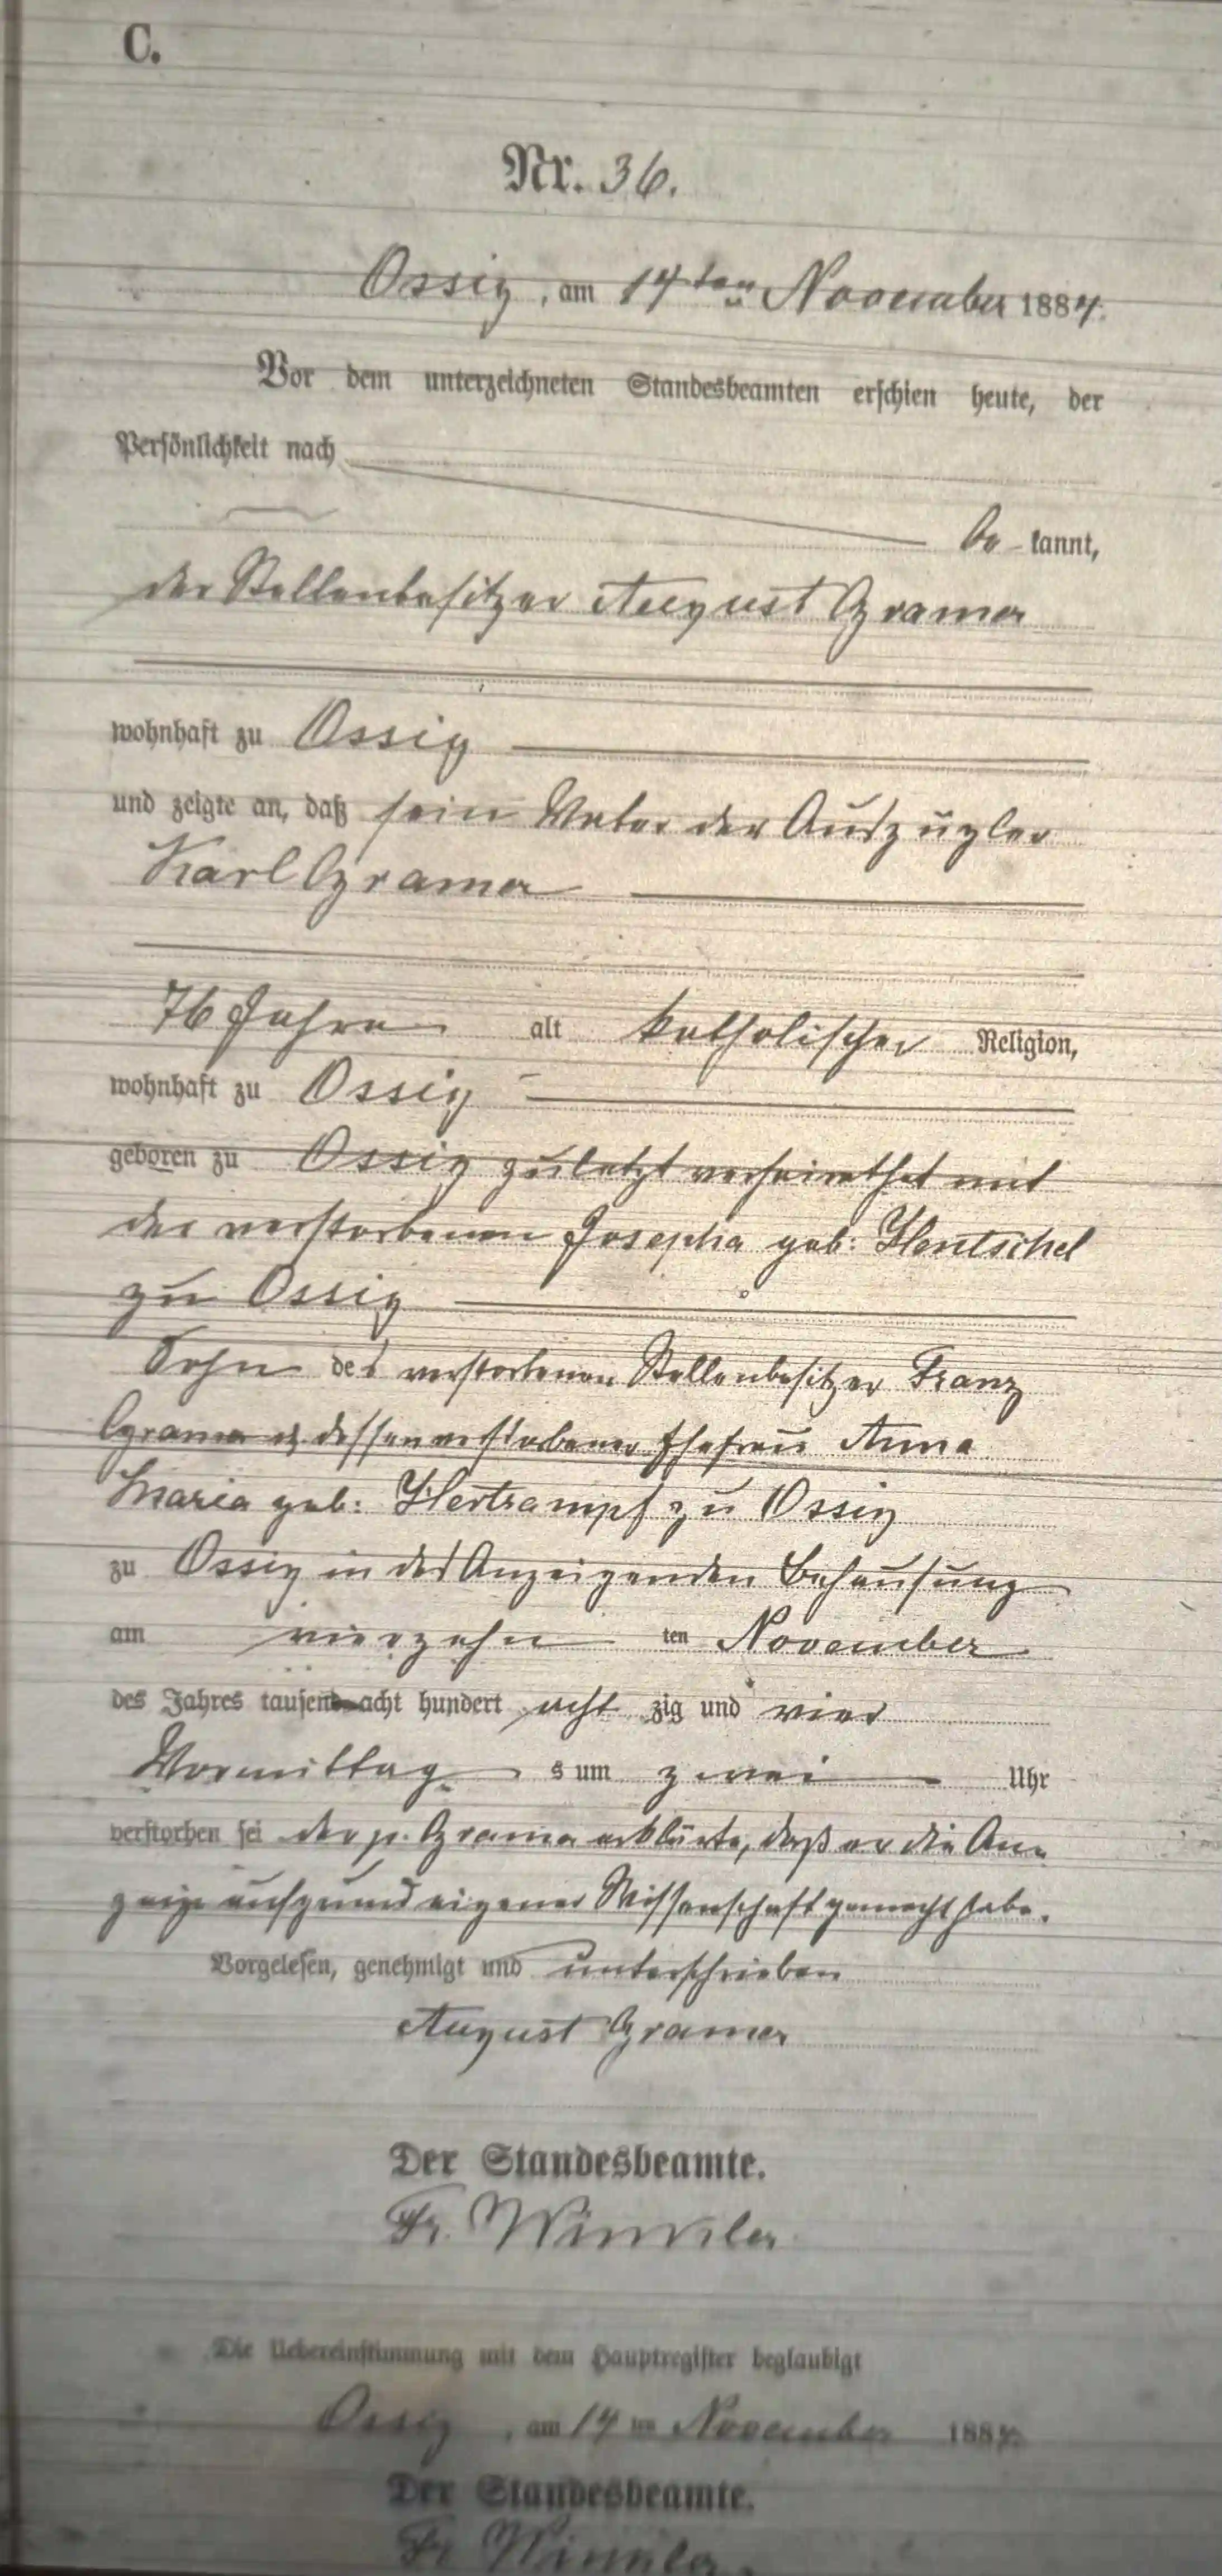 C.
Nr. 36.
Ossig, am 14ten November 1884.
Vor dem unterzeichneten Standesbeamten erschien heute, der
Persönlichkeit nach
be-kannt,
der Stellenbesitzer August Gramer
wohnhaft zu Ossig
und zeigte an, daß sein Vater der Auszügler
Karl Gramer
76 Jahre alt katholischer Religion,
wohnhaft zu Ossig
geboren zu Ossig zuletzt verheirathet mit
der verstorbenen Josepha geb: Hentschel
zu Ossig
Sohn des verstorbenen Stellenbesitzer Franz
Gramer u dessen verstorbener Ehefrau Anna
Maria geb: Hertrampf zu Ossig
zu Ossig in des Anzeigenden Behausung
am vierzehn ten November
des Jahres tausend acht hundert acht zig und vier
Vormittag s um zwei Uhr
verstorben sei der p. Gramer erklärte, daß er die An-
zeige aufgrund eigener Wissenschaft gemacht habe.
Vorgelesen, genehmigt und unterschrieben
August Gramer
Der Standesbeamte.
Fr. Winkler
Die Uebereinstimmung mit dem Hauptregister beglaubigt
Ossig, am 14 ten November 1884.
Der Standesbeamte.
Fr. Winkler.